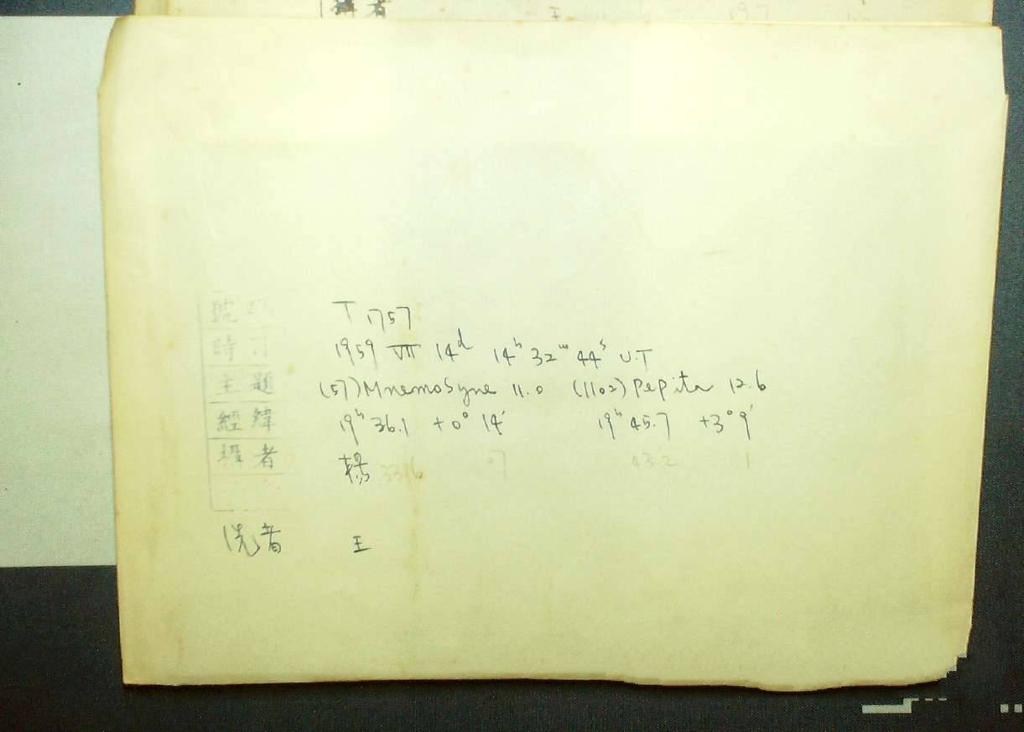 攝者
號碼 T 1757
時 1959 VII 14ᵈ 14ʰ 32ᵐ 44ˢ U.T
主題 (57) Mnemosyne 11.0 (1102) Pepita 12.6
經緯 19ʰ 36.1 +0° 14′ 19ʰ 45.7 +3° 9′
攝者 楊 43.2
洗者 王